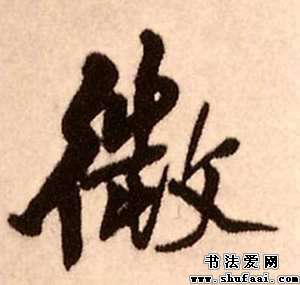 微
书法爱网
www.shufaai.com